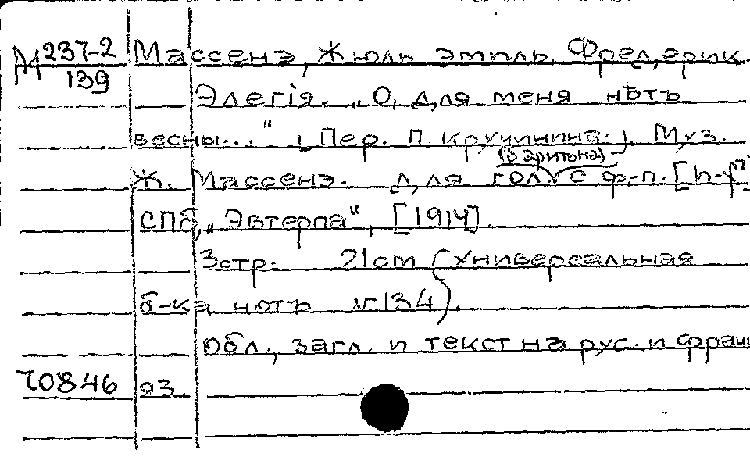 М 237-2 Массенэ, Жюль Эмиль Фредерик.
139
Элегія. „О, для меня нѣтъ
весны..." (Пер. П. Кручинина.). Муз.
(баритона)
Ж. Массенэ. Для гол. с ф.-п. [h-f"]
СПб, „Эвтерпа", [1914].
3 стр. 21 см (Универсальная
б-ка нотъ №134).
Обл., загл. и текст на рус. и франц
70846 яз